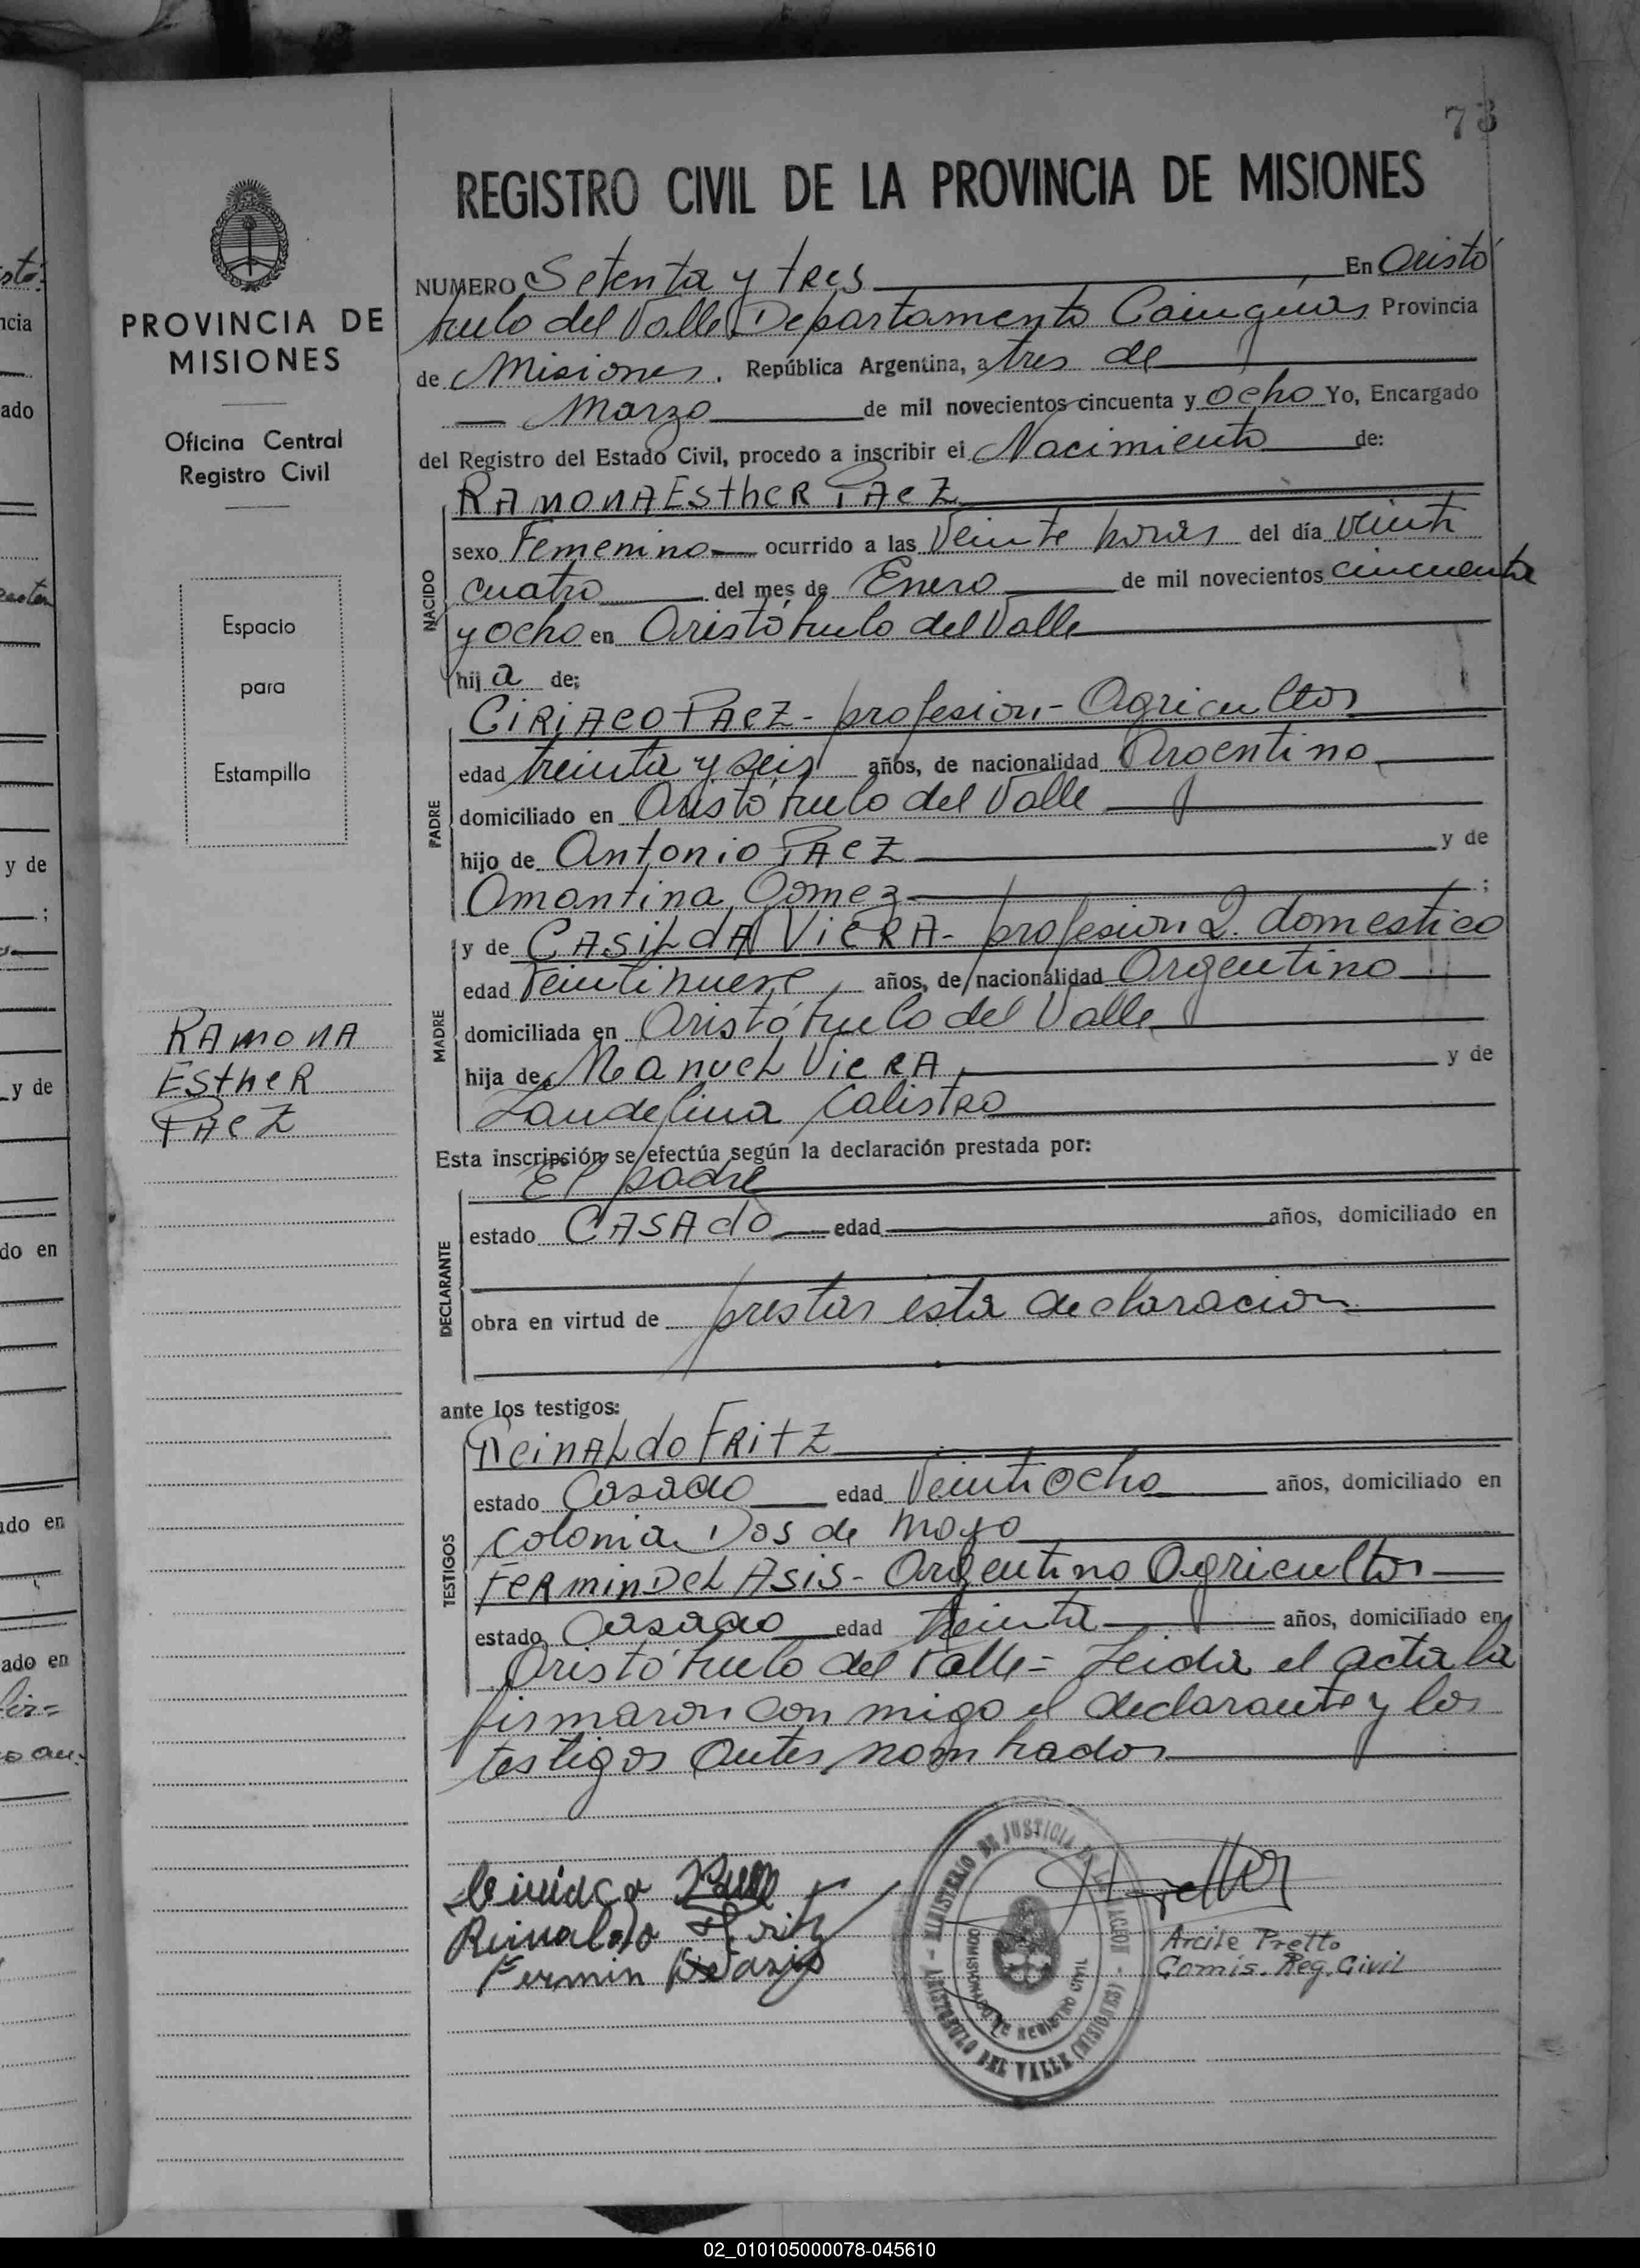 73
REGISTRO CIVIL DE LA PROVINCIA DE MISIONES
PROVINCIA DE
MISIONES
Oficina Central
Registro Civil
Espacio
para
Estampilla
RAMONA
ESTHER
PAEZ
NUMERO Setenta y tres En Aristó
bulo del Valle Departamento Cainguas Provincia
de Misiones, República Argentina, a tres de
Marzo de mil novecientos cincuenta y ocho Yo, Encargado
del Registro del Estado Civil, procedo a inscribir el Nacimiento de:
NACIDO
RAMONA ESTHER PAEZ
sexo Femenino ocurrido a las Veinte horas del día veinti
cuatro del mes de Enero de mil novecientos cincuenta
y ocho en Aristóbulo del Valle
hija de:
PADRE
CIRIACO PAEZ - profesion - Agricultor
edad treinta y seis años, de nacionalidad Argentino
domiciliado en Aristóbulo del Valle
hijo de Antonio PAEZ y de
Amantina Gomez ;
MADRE
y de CASILDA VIERA - profesion Q. domestico
edad Veintinueve años, de nacionalidad Argentino
domiciliada en Aristóbulo del Valle
hija de Manuel Viera y de
Laudelina Calistro
Esta inscripción se efectúa según la declaración prestada por:
DECLARANTE
El padre
estado CASADO edad años, domiciliado en
obra en virtud de prestar esta declaracion
ante los testigos:
TESTIGOS
REINALDO FRITZ
estado Casado edad Veintiocho años, domiciliado en
Colonia Dos de Mayo
FERMIN DEL ASIS - Argentino Agricultor
estado Casado edad treinta años, domiciliado en
Aristóbulo del Valle = Leida el acta la
firmaron con migo el declarante y los
testigos antes nombrados
Reinaldo Fritz
Fermin
MINISTERIO DE JUSTICIA DE LA NACION - ARISTOBULO DEL VALLE (MISIONES) -
COMISIONADO DE REGISTRO CIVIL
Arcile Pretto
Comis. Reg. Civil
02_010105000078-045610